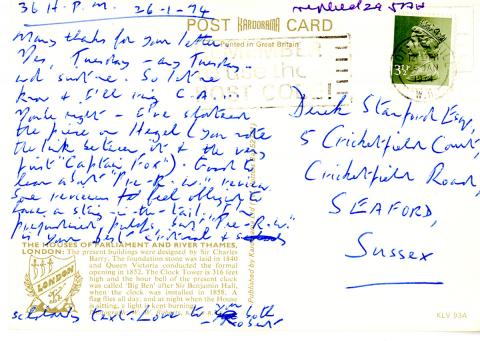 36 H. P. M. 26-1-74
replied 29 JAN
POST KARDORAMA CARD
Printed in Great Britain
Many thanks for your letter
Yes, Tuesday – any Tuesday
wd suit me. So let me
know & I'll ring C.A.
You're right – I've shortened
the piece on Hegel (you note
the link between it & the very
first "Captain Fox"). Good to
hear about "Pre-R-w" review
Some reviewers feel obliged to
have a sting-in-the-tail. The
but "Pre-R.W."
is your best critical &
scholarly text. Love to you both
Robert
REMEMBER
use the
POST CODE
3½P
JAN
1974
Derek Stanford Esq,
5 Cricketfield Court,
Cricketfield Road,
SEAFORD,
Sussex
THE HOUSES OF PARLIAMENT AND RIVER THAMES,
LONDON: The present buildings were designed by Sir Charles
Barry. The foundation stone was laid in 1840
and Queen Victoria conducted the formal
opening in 1852. The Clock Tower is 316 feet
high and the hour bell of the present clock
was called 'Big Ben' after Sir Benjamin Hall,
when the clock was installed in 1858. A
flag flies all day, and at night when the House
is sitting, a light is kept burning.
LONDON
Published by
KLV 93A